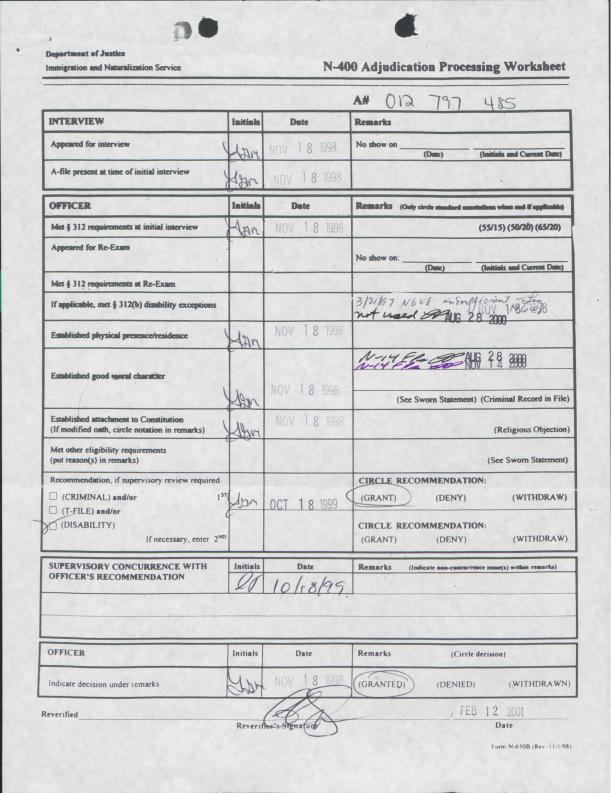 Department of Justice
Immigration and Naturalization Service
N-400 Adjudication Processing Worksheet
A# 012 797 485
INTERVIEW Initials Date Remarks
Appeared for interview NOV 18 1998 No show on
(Date) (Initials and Current Date)
A-file present at time of initial interview NOV 18 1998
OFFICER Initials Date Remarks (Only circle standard annotations when and if applicable)
Met § 312 requirements at initial interview NOV 18 1998 (55/15) (50/20) (65/20)
Appeared for Re-Exam
No show on:
(Date) (Initials and Current Date)
Met § 312 requirements at Re-Exam
If applicable, met § 312(b) disability exceptions 3/21/97 N648 insufficient NOV 18 1998
not used AUG 28 2000
Established physical presence/residence NOV 18 1998
N-14 AUG 28 2000
N-14 NOV 14 2000
Established good moral character NOV 18 1998
(See Sworn Statement) (Criminal Record in File)
Established attachment to Constitution NOV 18 1998
(If modified oath, circle notation in remarks) (Religious Objection)
Met other eligibility requirements
(put reason(s) in remarks) (See Sworn Statement)
Recommendation, if supervisory review required CIRCLE RECOMMENDATION:
(CRIMINAL) and/or 1ST OCT 18 1999 (GRANT) (DENY) (WITHDRAW)
(T-FILE) and/or
(DISABILITY) CIRCLE RECOMMENDATION:
If necessary, enter 2ND (GRANT) (DENY) (WITHDRAW)
SUPERVISORY CONCURRENCE WITH Initials Date Remarks (Indicate non-concurrence issue(s) within remarks)
OFFICER'S RECOMMENDATION 10/18/99
OFFICER Initials Date Remarks (Circle decision)
Indicate decision under remarks NOV 18 1998 (GRANTED) (DENIED) (WITHDRAWN)
Reverified FEB 12 2001
Reverifier's Signature Date
Form N-650B (Rev. 11/1/98)